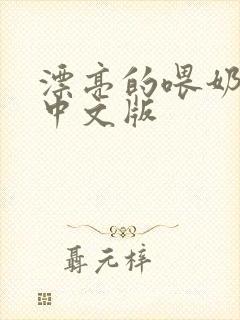 漂亮的喂奶
中文版
聶元梓